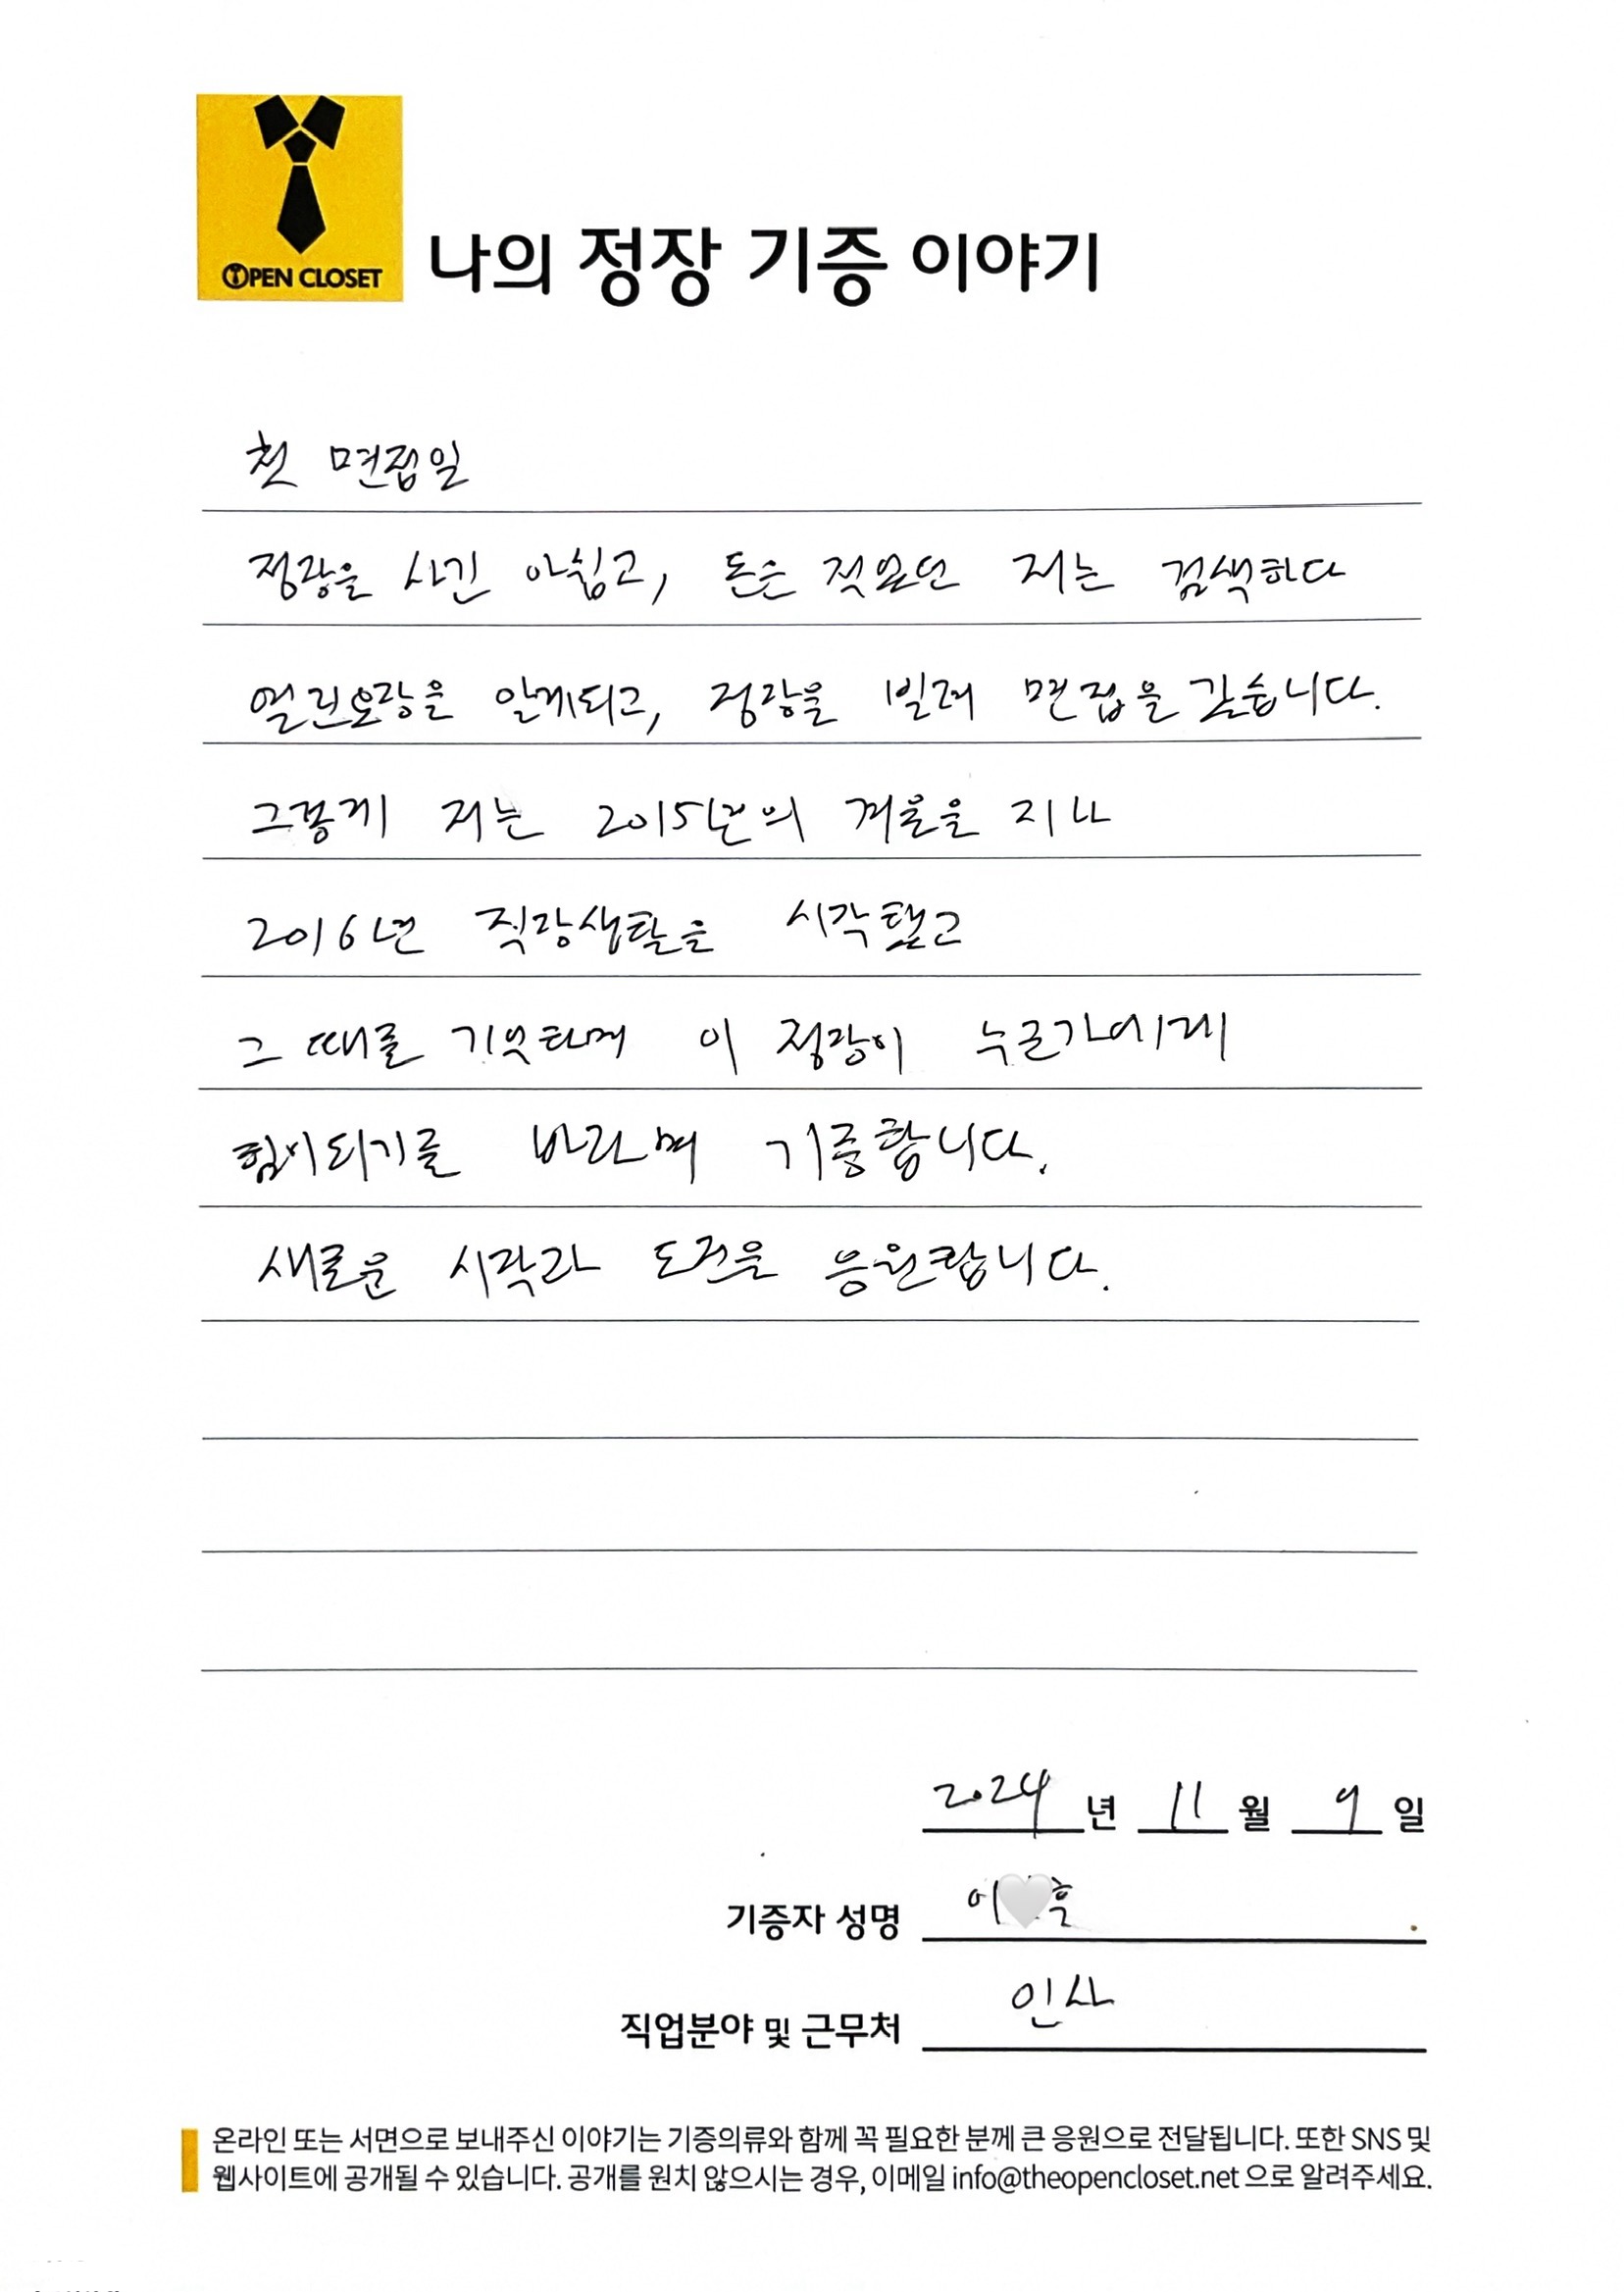 OPEN CLOSET
나의 정장 기증 이야기
첫 면접일
정장을 사긴 아쉽고, 돈은 적었던 저는 검색하다
열린옷장을 알게되고, 정장을 빌려 면접을 갔습니다.
그렇게 저는 2015년의 겨울을 지나
2016년 직장생활을 시작했고
그 때를 기억하며 이 정장이 누군가에게
힘이되기를 바라며 기증합니다.
새로운 시작과 도전을 응원합니다.
2024 년 11 월 9 일
기증자 성명 이 훈
직업분야 및 근무처 인사
온라인 또는 서면으로 보내주신 이야기는 기증의류와 함께 꼭 필요한 분께 큰 응원으로 전달됩니다. 또한 SNS 및
웹사이트에 공개될 수 있습니다. 공개를 원치 않으시는 경우, 이메일 info@theopencloset.net 으로 알려주세요.